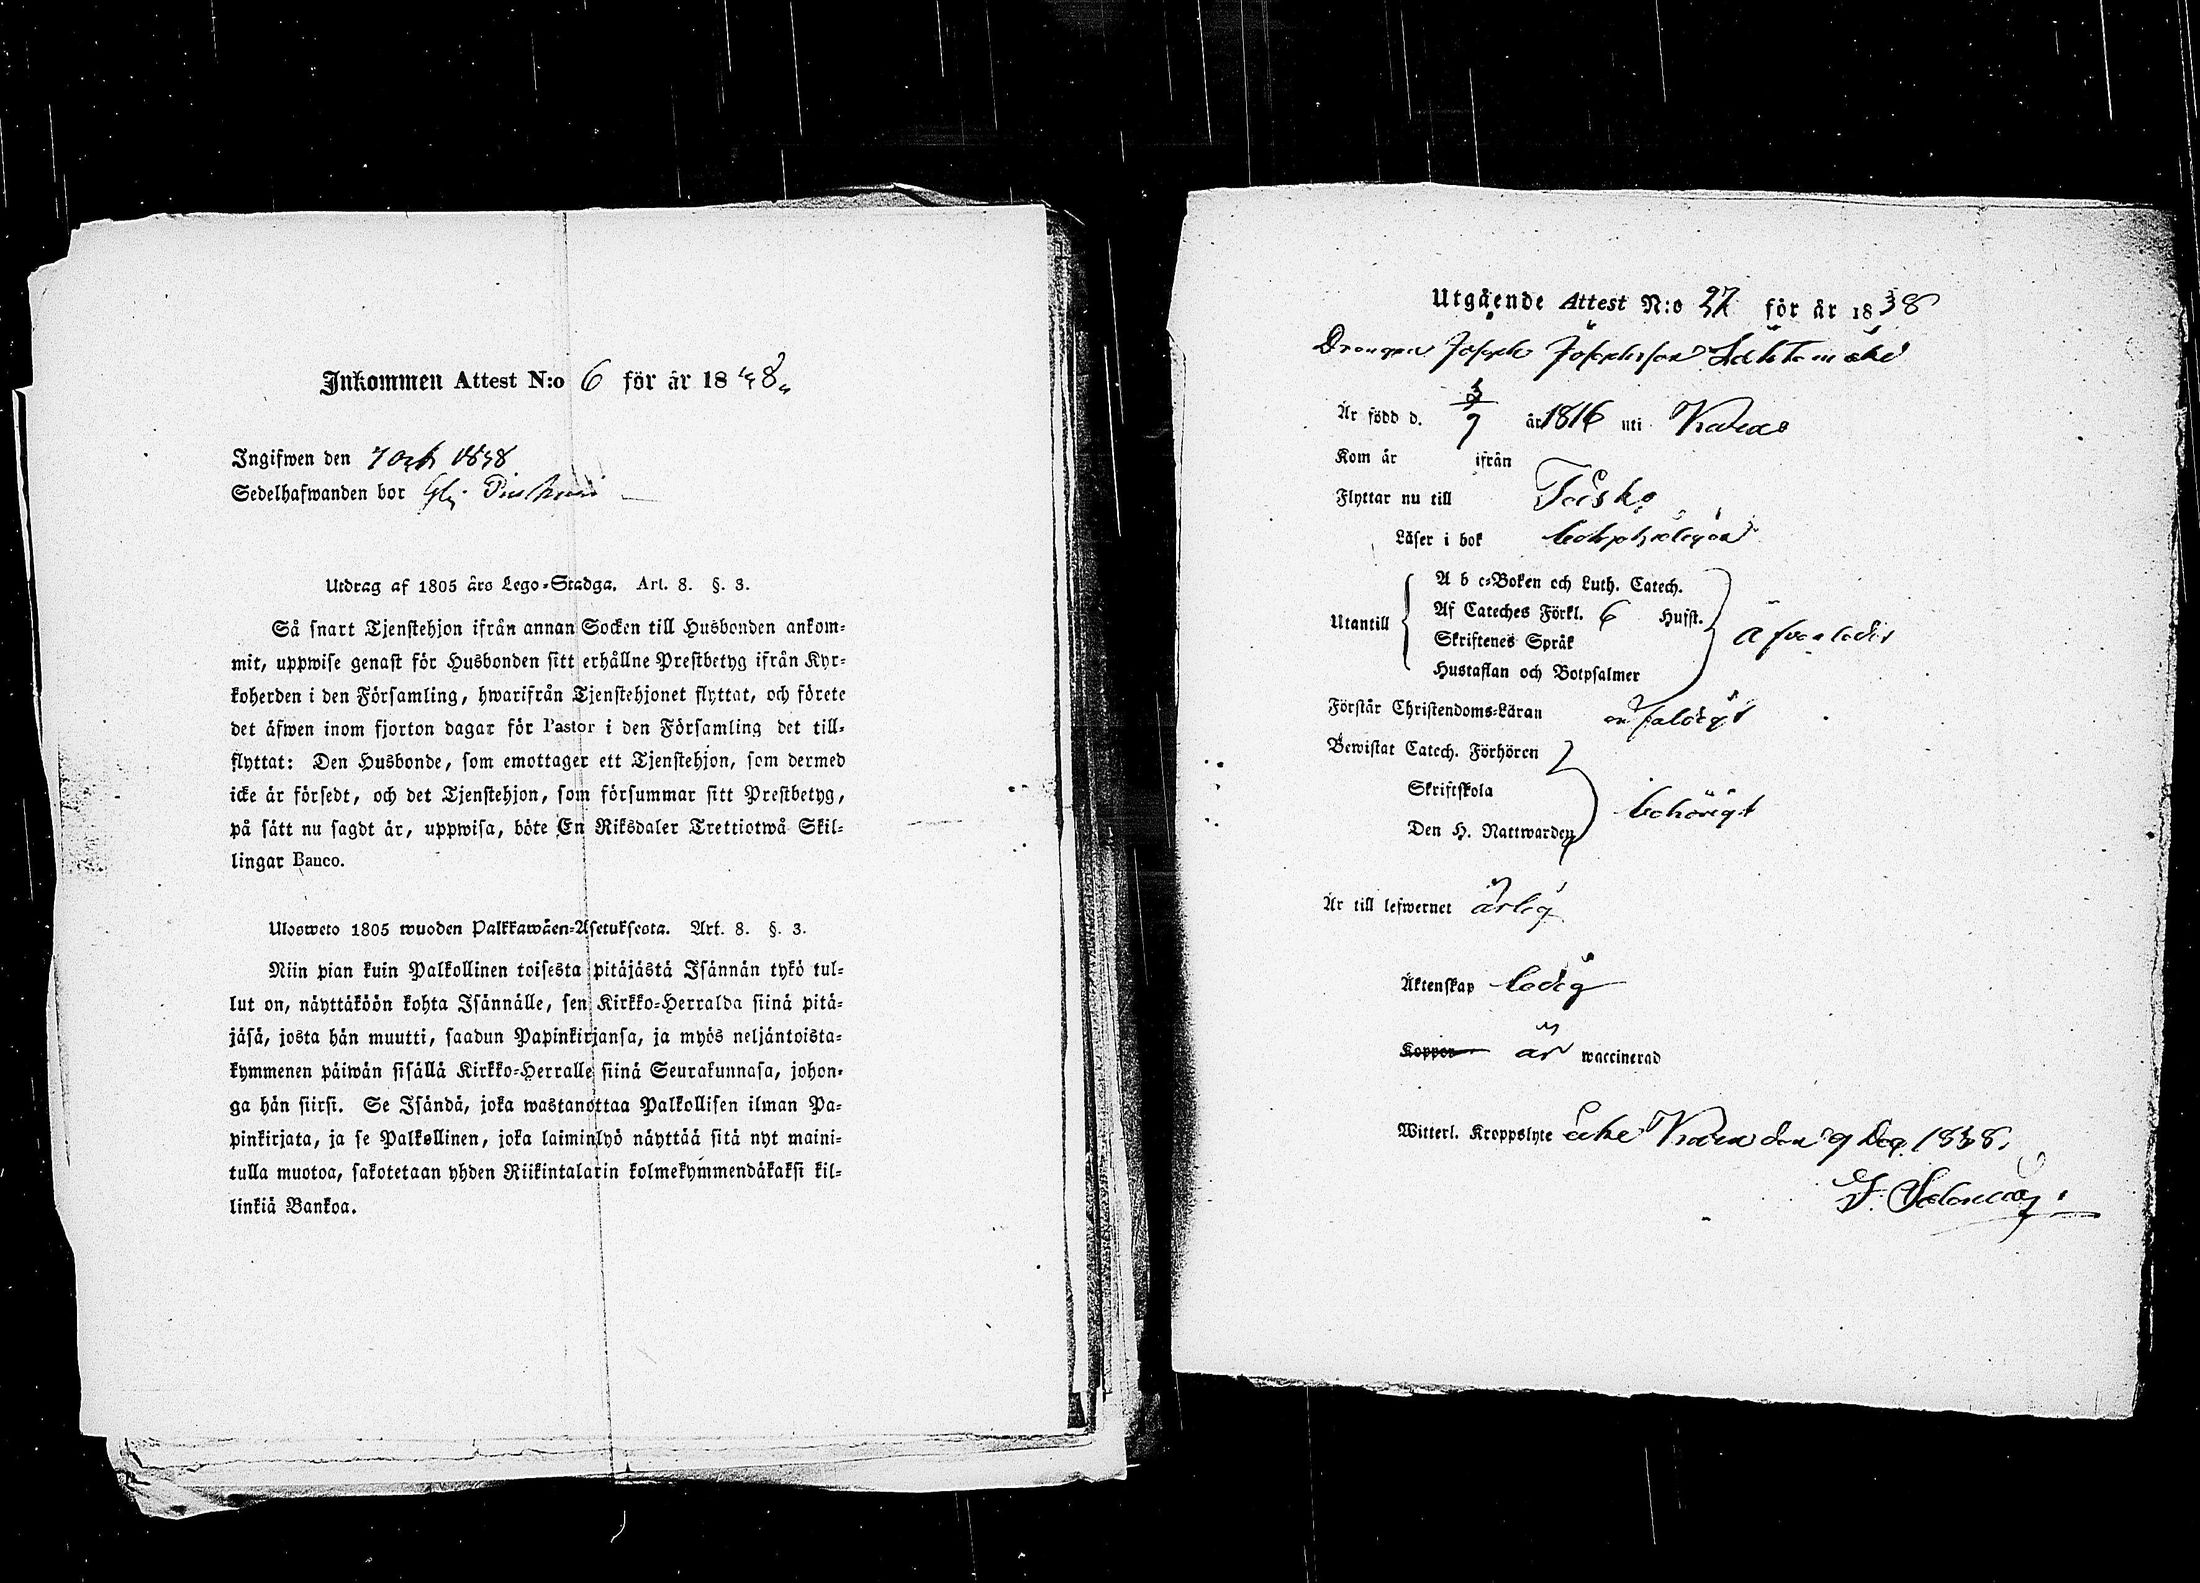 Inkommen Attest N:o 6 för år 1838
Ingifwen den 7 Oct 1838
Sedelhafwanden bor
Utdrag af 1805 års Lego-Stadga. Art. 8. §. 3.
Så snart Tjenstehjon ifrån annan Socken till Husbonden ankom-
mit, uppwise genast för Husbonden sitt erhållne Prestbetyg ifrån Kyr-
koherden i den Församling, hwarifrån Tjenstehjonet flyttat, och förete
det äfwen inom fjorton dagar för Pastor i den Församling det till-
flyttat: Den Husbonde, som emottager ett Tjenstehjon, som dermed
icke är försedt, och det Tjenstehjon, som försummar sitt Prestbetyg,
på sätt nu sagdt är, uppwisa, böte En Riksdaler Trettiotwå Skil-
lingar Banco.
Ulosweto 1805 wuoden Palkkawäen-Asetuksesta. Art. 8. §. 3.
Niin pian kuin Palkollinen toisesta pitäjästä Isännän tykö tul-
lut on, näyttäköön kohta Isännälle, sen Kirkko-Herralda siinä pitä-
jäsä, josta hän muutti, saadun Papinkirjansa, ja myös neljäntoista-
kymmenen päiwän sisällä Kirkko-Herralle siinä Seurakunnasa, johon-
ga hän siirsi. Se Isändä, joka wastanottaa Palkollisen ilman Pa-
pinkirjata, ja se Palkollinen, joka laiminlyö näyttää sitä nyt maini-
tulla muotoa, sakotetaan yhden Riikintalarin kolmekymmendäkaksi kil-
linkiä Bankoa.
Utgående Attest N:o 27 för år 1838
Drengen Joseph Josephsson
Är född d. 3/7 år 1816 uti
Kom år ifrån
Flyttar nu till
Läser i bok
Utantill
A b c-Boken och Luth. Catech.
Af Cateches Förkl. 6 Hufst.
Skriftenes Språk
Hustaflan och Botpsalmer
Förstår Christendoms-Läran enfaldigt
Bewistat Catech. Förhören
Skriftskola
Den H. Nattwarden
behörigt
Är till lefwernet ärlig
Äktenskap ledig
Koppor är waccinerad
Witterl. Kroppslyte icke den 9 1838.